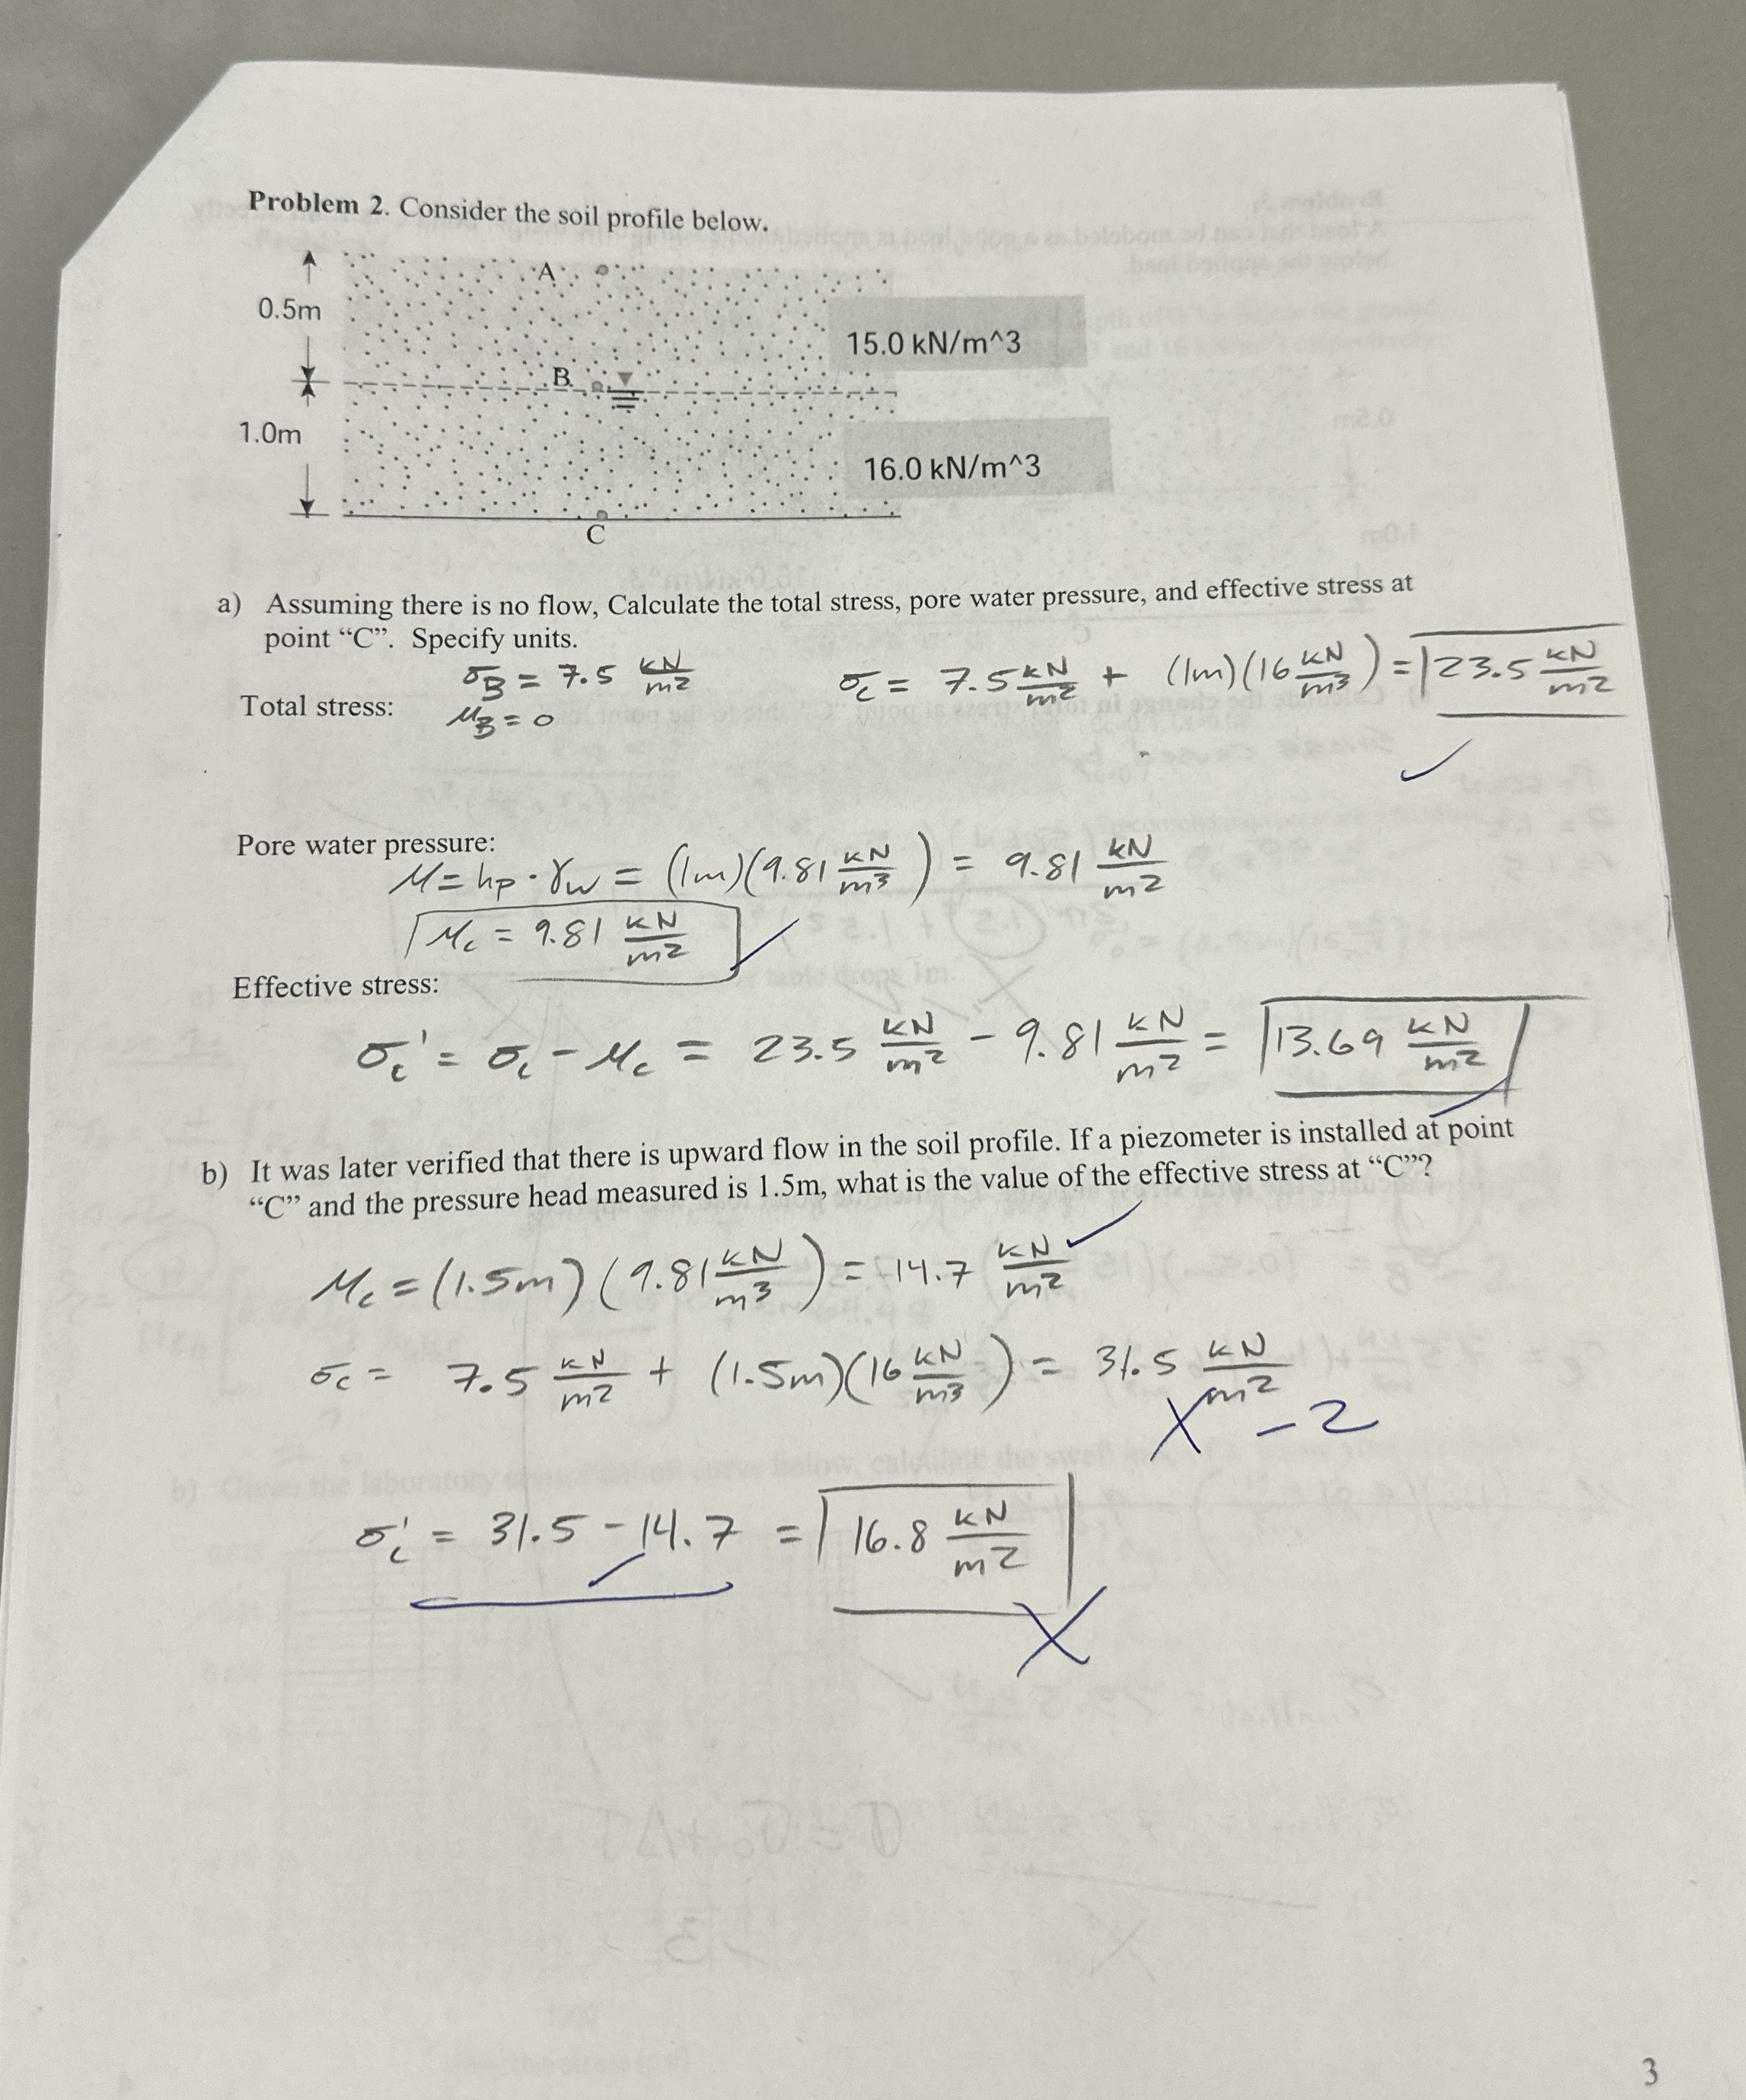 Problem 2. Consider the soil profile below.
A
0.5m
15.0 kN/m^3
B
1.0m
16.0 kN/m^3
C
a) Assuming there is no flow, Calculate the total stress, pore water pressure, and effective stress at
point “C”. Specify units.
σB = 7.5 kN/m2
σc = 7.5 kN/m2 + (1m)(16 kN/m3) = 23.5 kN/m2
Total stress:
μB = 0
✓
Pore water pressure:
μ = hp · γw = (1m)(9.81 kN/m3) = 9.81 kN/m2
μc = 9.81 kN/m2 ✓
Effective stress:
σc' = σc - μc = 23.5 kN/m2 - 9.81 kN/m2 = 13.69 kN/m2
b) It was later verified that there is upward flow in the soil profile. If a piezometer is installed at point
“C” and the pressure head measured is 1.5m, what is the value of the effective stress at “C”?
μc = (1.5m)(9.81 kN/m3) = 14.7 kN/m2 ✓
σc = 7.5 kN/m2 + (1.5m)(16 kN/m3) = 31.5 kN/m2
X - 2
σc' = 31.5 - 14.7 = 16.8 kN/m2
✓ X
3